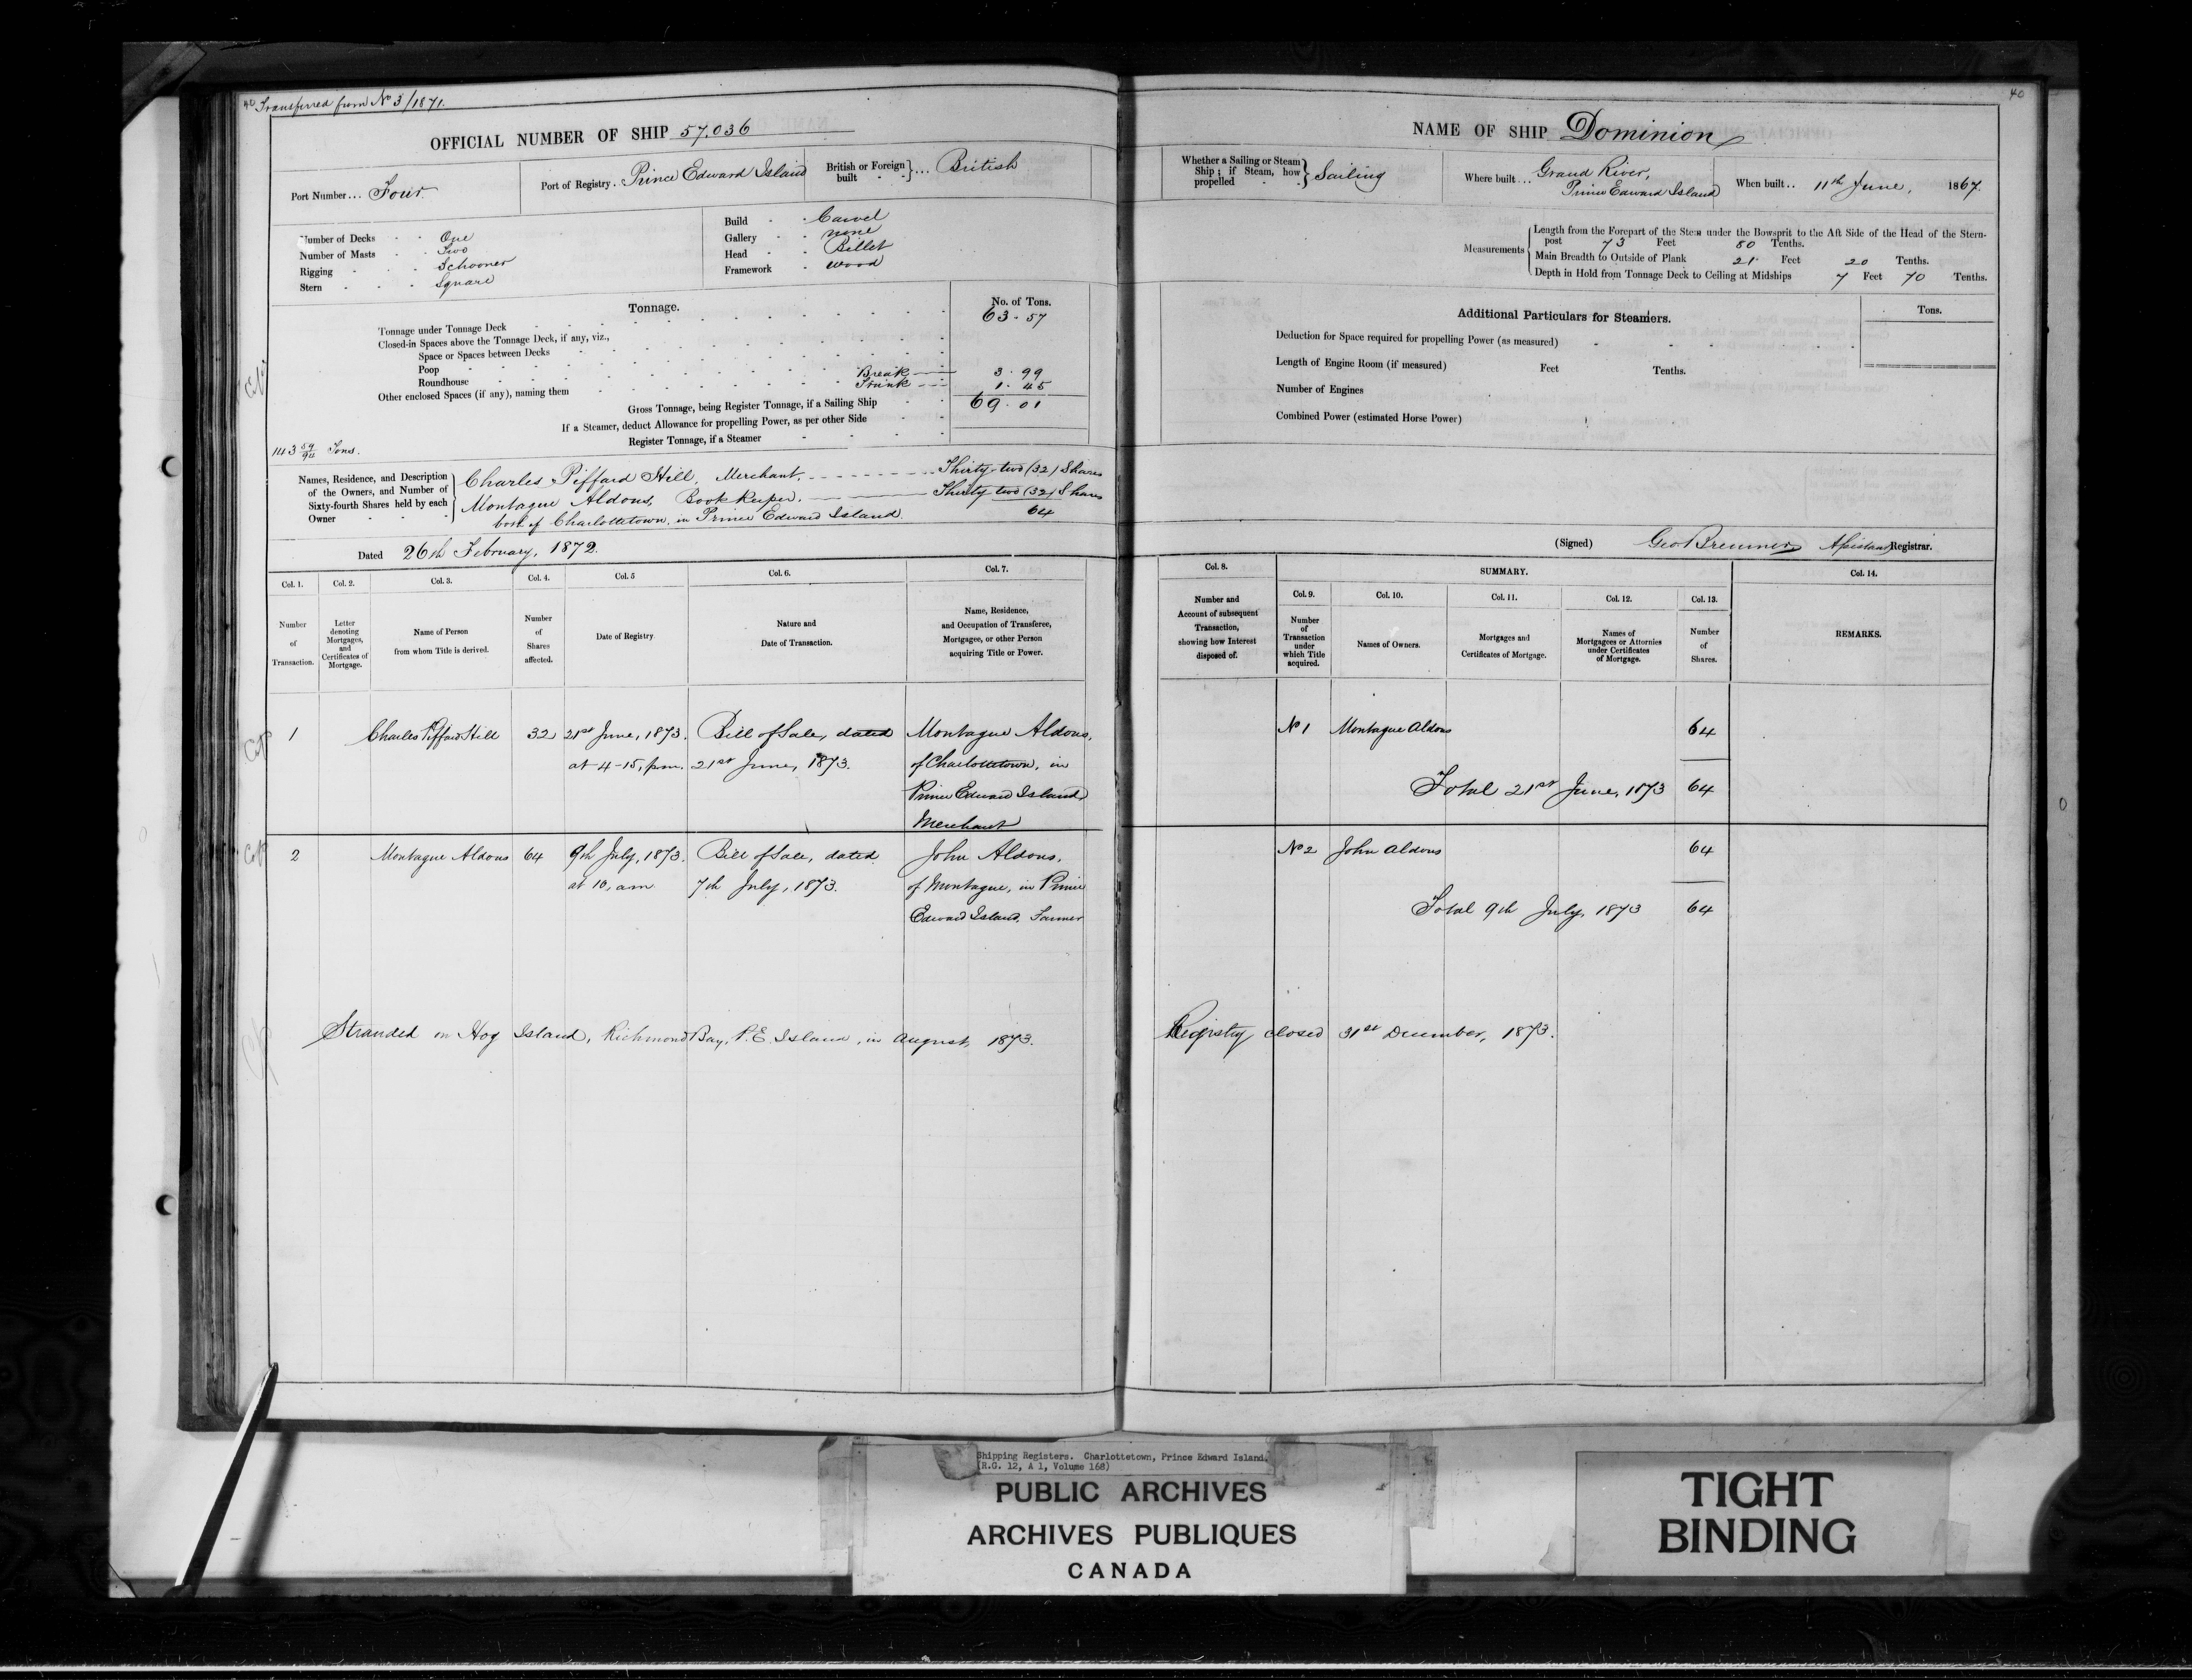 40 Transferred from No 3/1871.
OFFICIAL NUMBER OF SHIP 57,036
Port Number... Four
Port of Registry.. Prince Edward Island
British or Foreign built } ... British
Number of Decks One
Number of Masts Two
Rigging Schooner
Stern Square
Build Carvel
Gallery none
Head Billet
Framework wood
Tonnage.
No. of Tons.
Tonnage under Tonnage Deck 63.57
Closed-in Spaces above the Tonnage Deck, if any, viz.,
Space or Spaces between Decks
Poop
Roundhouse Break 3.99
Other enclosed Spaces (if any), naming them Trunk 1.45
Gross Tonnage, being Register Tonnage, if a Sailing Ship 69.01
If a Steamer, deduct Allowance for propelling Power, as per other Side
Register Tonnage, if a Steamer
143 59/94 Tons.
Names, Residence, and Description of the Owners, and Number of Sixty-fourth Shares held by each Owner
Charles Piffard Hill, Merchant, Thirty-two (32) Shares
Montague Aldous, Book Keeper. Thirty two (32) Shares
both of Charlottetown, in Prince Edward Island. 64
Dated 26th February, 1872.
Col. 1. Col. 2. Col. 3. Col. 4. Col. 5 Col. 6. Col. 7.
Number of Transaction.
Letter denoting Mortgages, and Certificates of Mortgage.
Name of Person from whom Title is derived.
Number of Shares affected.
Date of Registry
Nature and Date of Transaction.
Name, Residence, and Occupation of Transferee, Mortgagee, or other Person acquiring Title or Power.
1 Charles Piffard Hill 32 21st June, 1873. Bill of Sale, dated Montague Aldous,
at 4-15, p.m. 21st June, 1873. of Charlottetown, in
Prince Edward Island
Merchant
2 Montague Aldous 64 9th July, 1873. Bill of Sale, dated John Aldous,
at 10, am 7th July, 1873. of Montague, in Prince
Edward Island, Farmer
Stranded on Hog Island, Richmond Bay, P.E. Island, in August, 1873.
40
NAME OF SHIP Dominion
Whether a Sailing or Steam Ship; if Steam, how propelled } Sailing
Where built... Grand River,
Prince Edward Island
When built.. 11th June, 1867.
Measurements
Length from the Forepart of the Stem under the Bowsprit to the Aft Side of the Head of the Stern-
post 73 Feet 80 Tenths.
Main Breadth to Outside of Plank 21 Feet 20 Tenths.
Depth in Hold from Tonnage Deck to Ceiling at Midships 7 Feet 70 Tenths.
Additional Particulars for Steamers.
Tons.
Deduction for Space required for propelling Power (as measured)
Length of Engine Room (if measured) Feet Tenths.
Number of Engines
Combined Power (estimated Horse Power)
(Signed) Geo Bremner Assistant Registrar.
Col. 8. SUMMARY. Col. 14.
Col. 9. Col. 10. Col. 11. Col. 12. Col. 13.
Number and Account of subsequent Transaction, showing how Interest disposed of.
Number of Transaction under which Title acquired.
Names of Owners.
Mortgages and Certificates of Mortgage.
Names of Mortgagees or Attornies under Certificates of Mortgage.
Number of Shares.
REMARKS.
No 1 Montague Aldous 64
Total 21st June, 1873 64
No 2 John Aldous 64
Total 9th July, 1873 64
Registry closed 31st December, 1873.
Shipping Registers. Charlottetown, Prince Edward Island.
(R.G. 12, A 1, Volume 168)
PUBLIC ARCHIVES
ARCHIVES PUBLIQUES
CANADA
TIGHT
BINDING